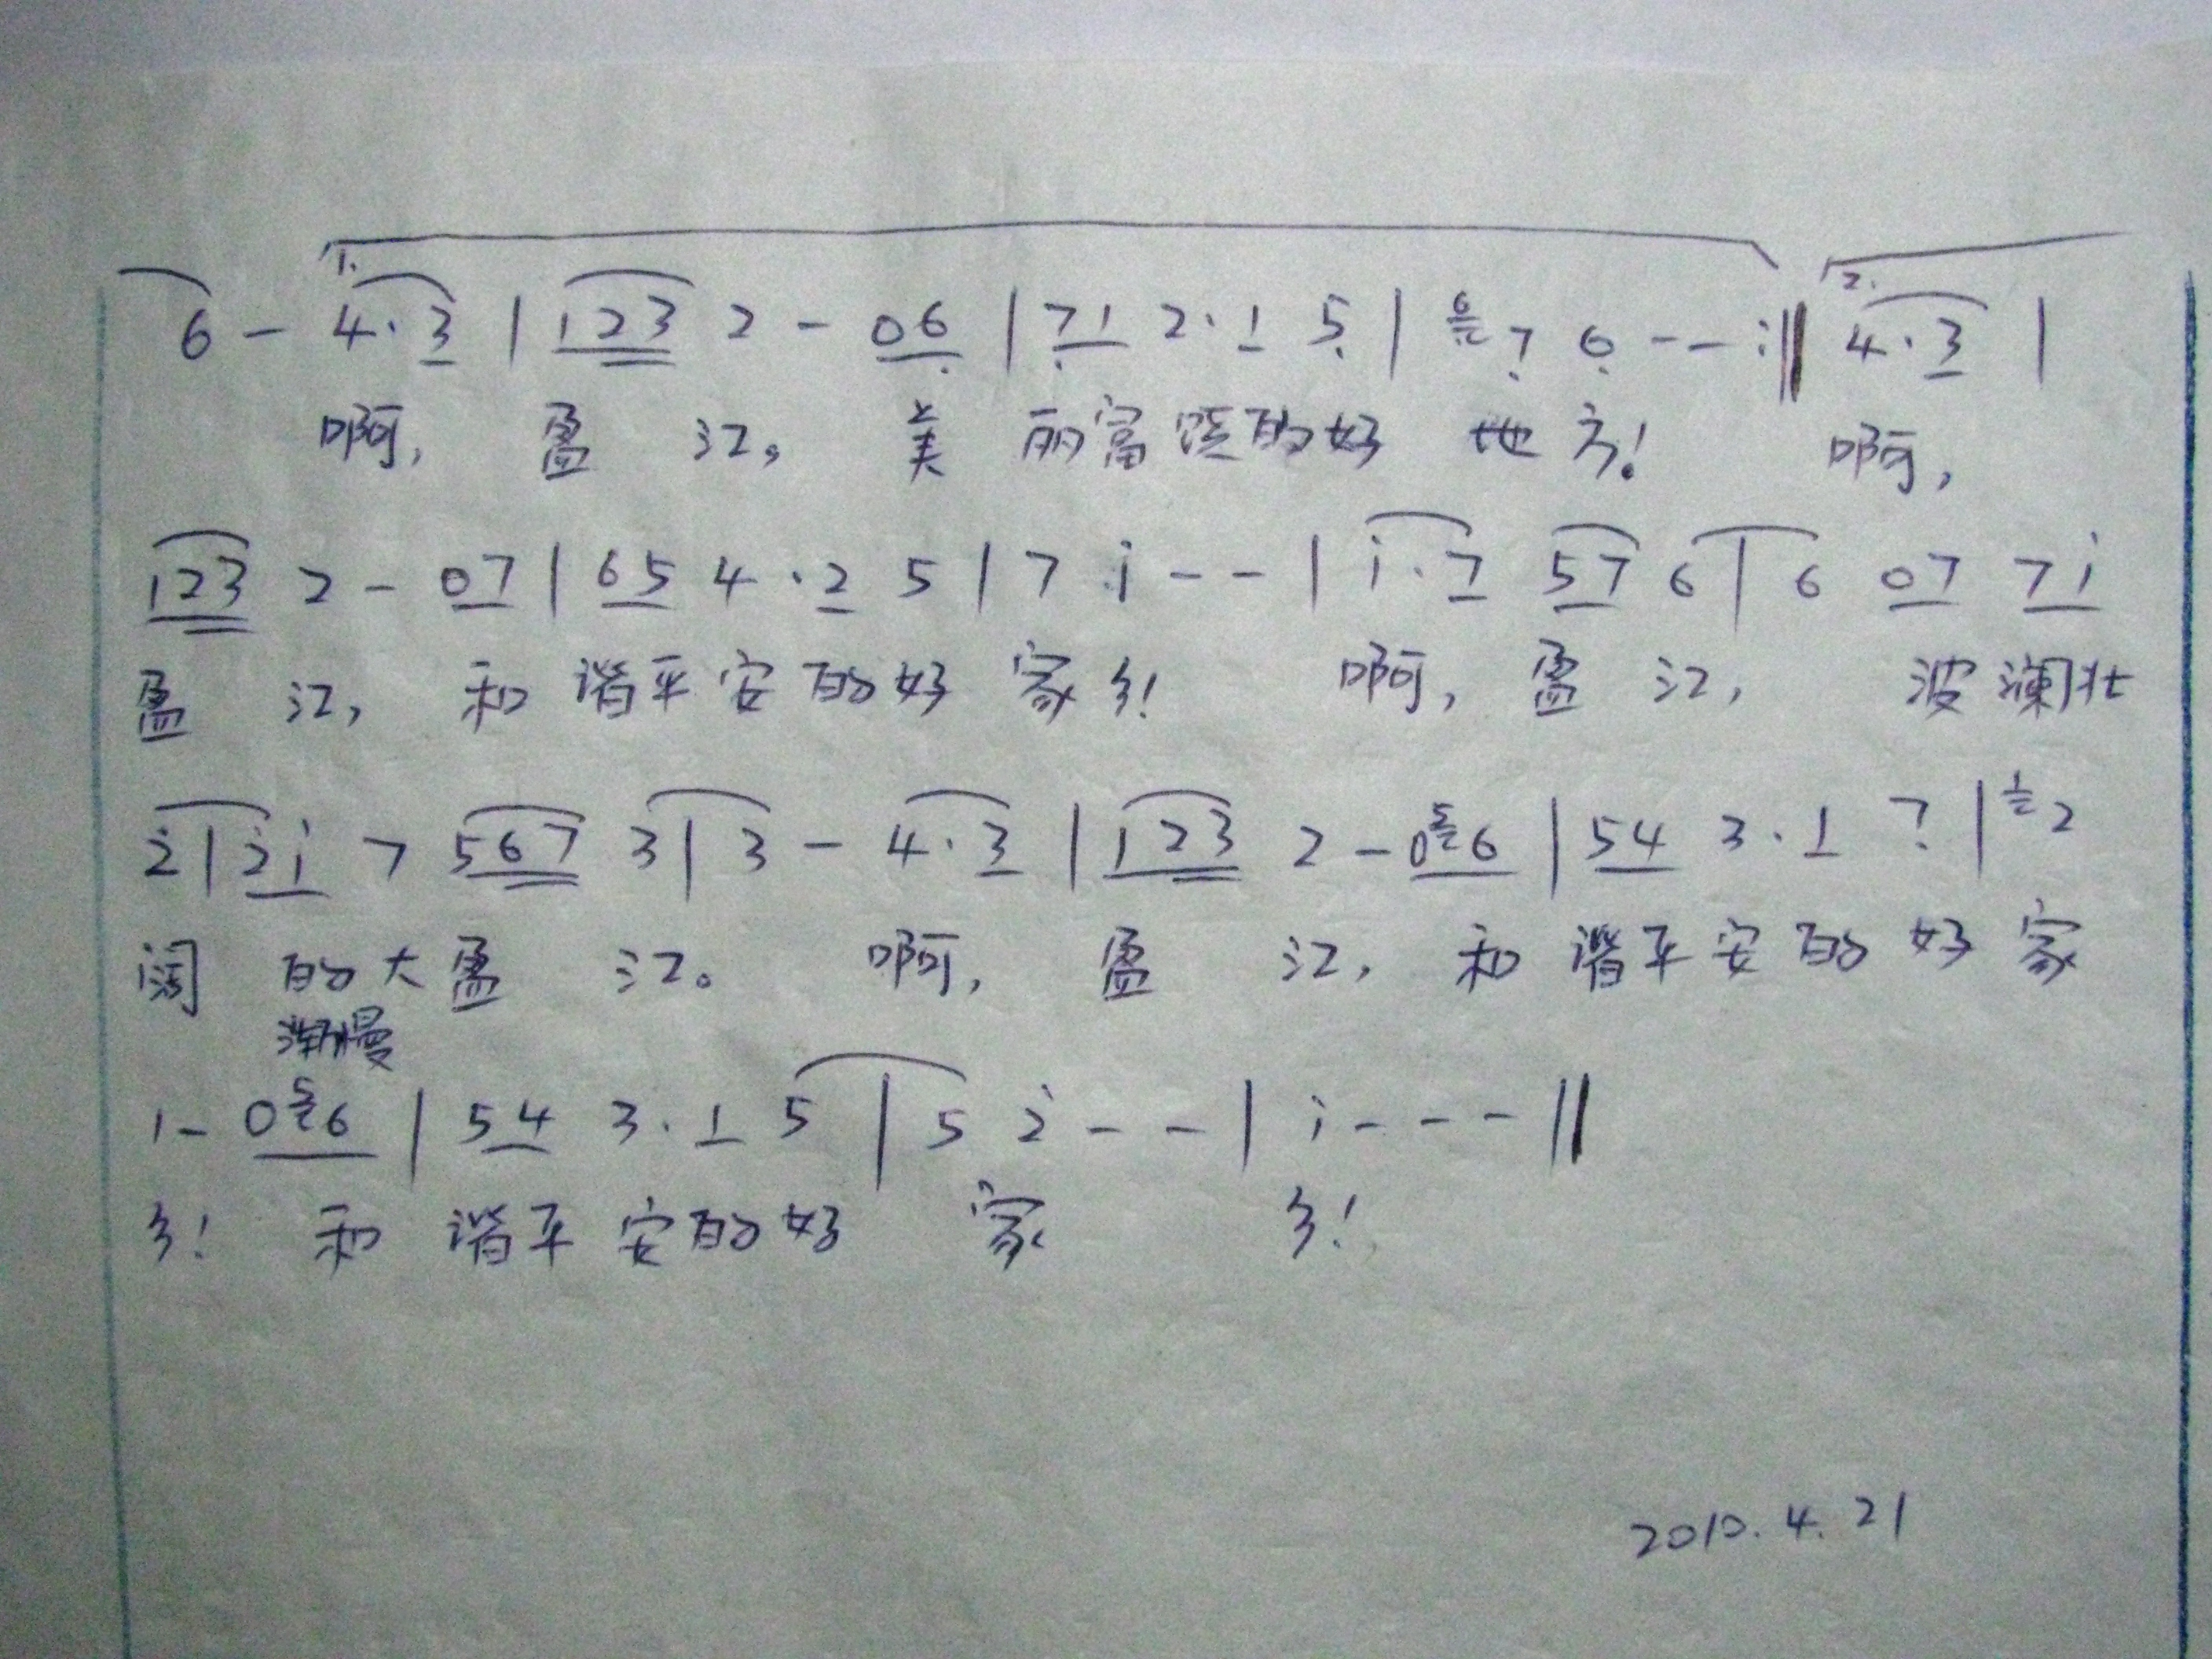 1. 2.
6 - 4·3 | 123 2 - 06 | 71 2·1 5 | 6 7 6 - - :‖ 4·3 |
啊, 盈 江。 美 丽富饶的好 地 方! 啊,
123 2 - 07 | 65 4·2 5 | 7 i - - | i·7 57 6 | 6 07 7i
盈 江, 和 谐平安的好 家乡! 啊, 盈 江, 波澜壮
2̇ | 2̇i 7 567 3 | 3 - 4·3 | 123 2 - 0 5 6 | 54 3·1 7 | 1 2
阔 的大盈 江。 啊, 盈 江, 和 谐平安的好 家
渐慢
1 - 0 5 6 | 54 3·1 5 | 5 2̇ - - | i - - - ‖
乡! 和 谐平安的好 家 乡!
2010.4.21